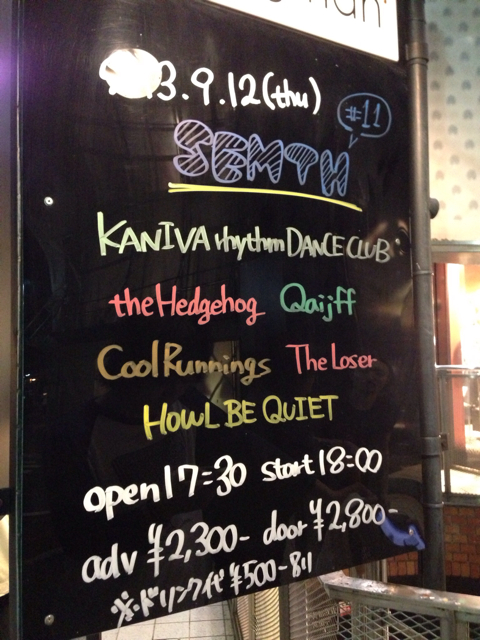 13.9.12(thu)
#11
SEMTH
KANIVA rhythm DANCE CLUB
the Hedgehog Qaijff
Cool Runnings The Loser
HOWL BE QUIET
open 17:30 start 18:00
adv ¥2,300- door ¥2,800-
※ドリンク代 ¥500-別